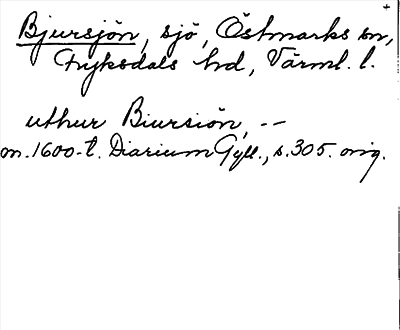 Bjursjön, sjö, Östmarks sn,
Fryksdals hd, Värml. l.
uthur Biursiön, --
m. 1600-t. Diarium Gyll., s. 305. orig.